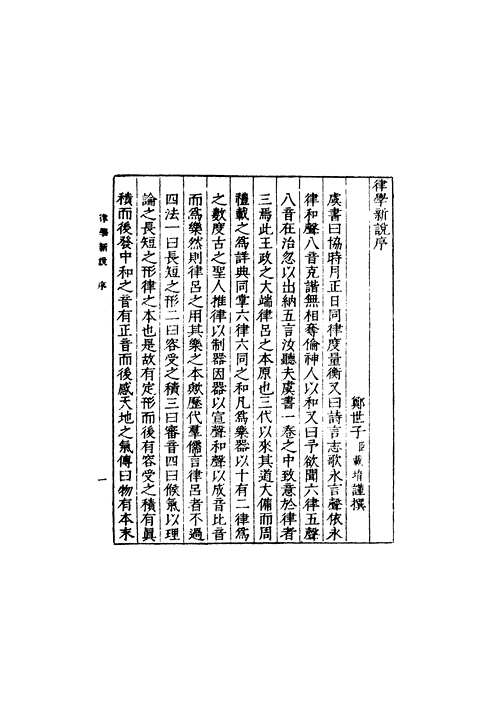 律學新說序
鄭世子臣載堉謹撰
虞書曰協時月正日同律度量衡又曰詩言志歌永言聲依永
律和聲八音克諧無相奪倫神人以和又曰予欲聞六律五聲
八音在治忽以出納五言汝聽夫虞書一卷之中致意於律者
三焉此王政之大端律呂之本原也三代以來其道大備而周
禮載之爲詳典同掌六律六同之和凡爲樂器以十有二律爲
之數度古之聖人推律以制器因器以宣聲和聲以成音比音
而爲樂然則律呂之用其樂之本歟歷代羣儒言律呂者不過
四法一曰長短之形二曰容受之積三曰審音四曰候氣以理
論之長短之形律之本也是故有定形而後有容受之積有眞
積而後發中和之音有正音而後感天地之氣傳曰物有本末
律學新說 序
一